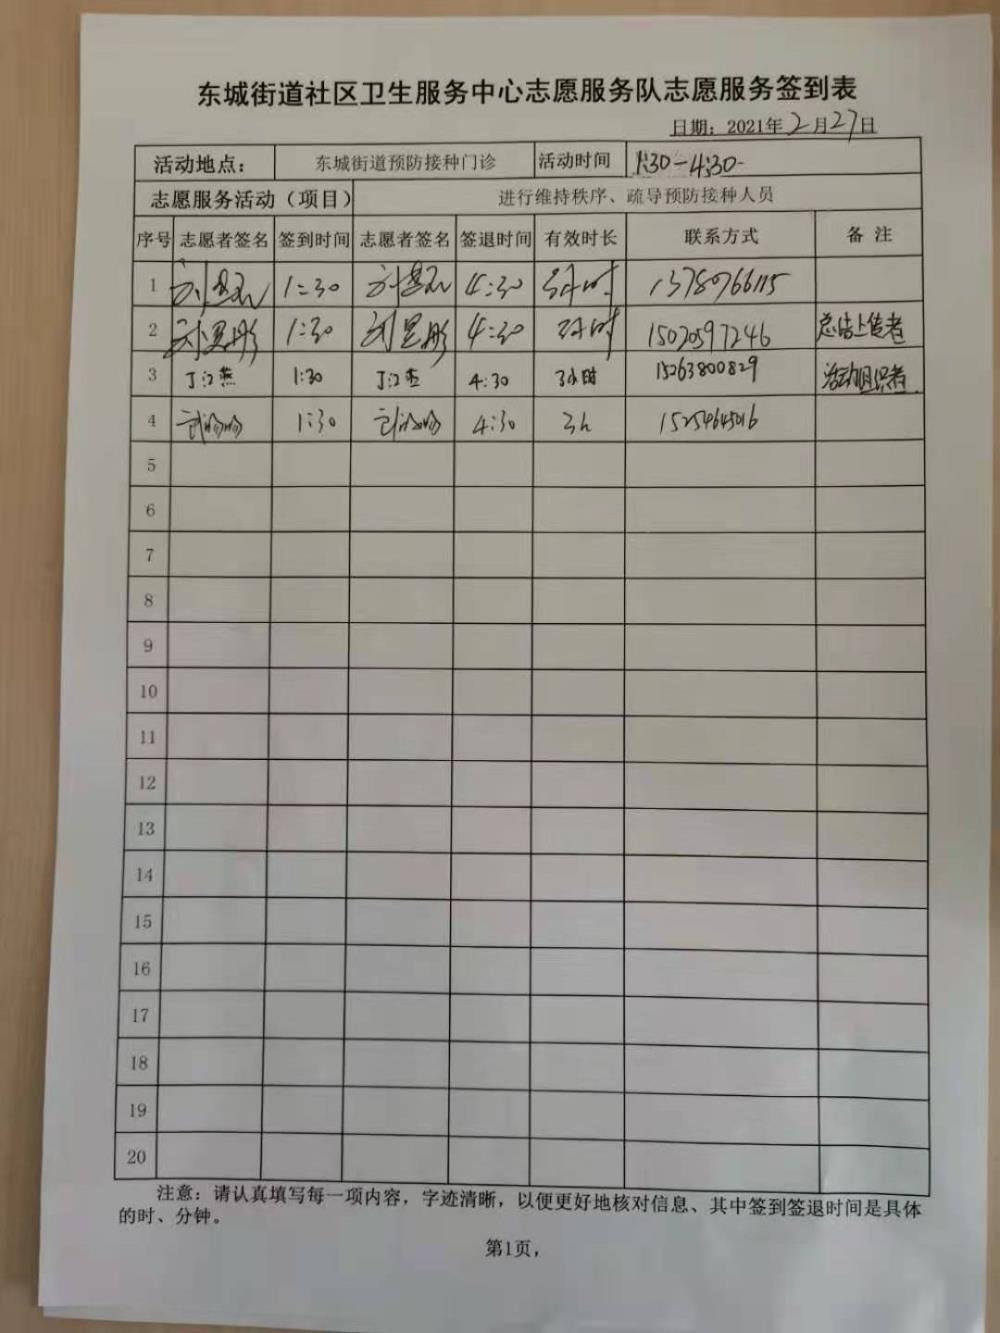 东城街道社区卫生服务中心志愿服务队志愿服务签到表
日期：2021年2月27日
活动地点： 东城街道预防接种门诊 活动时间 1:30-4:30-
志愿服务活动（项目） 进行维持秩序、疏导预防接种人员
序号 志愿者签名 签到时间 志愿者签名 签退时间 有效时长 联系方式 备 注
1 1:30 4:30 3小时 13780766115
2 刘昱彤 1:30 刘昱彤 4:30 3小时 15020597246 总结上传者
3 丁江燕 1:30 丁江燕 4:30 3小时 15263800829 活动组织者
4 1:30 4:30 3h 15254645016
5
6
7
8
9
10
11
12
13
14
15
16
17
18
19
20
注意：请认真填写每一项内容，字迹清晰，以便更好地核对信息、其中签到签退时间是具体
的时、分钟。
第1页，